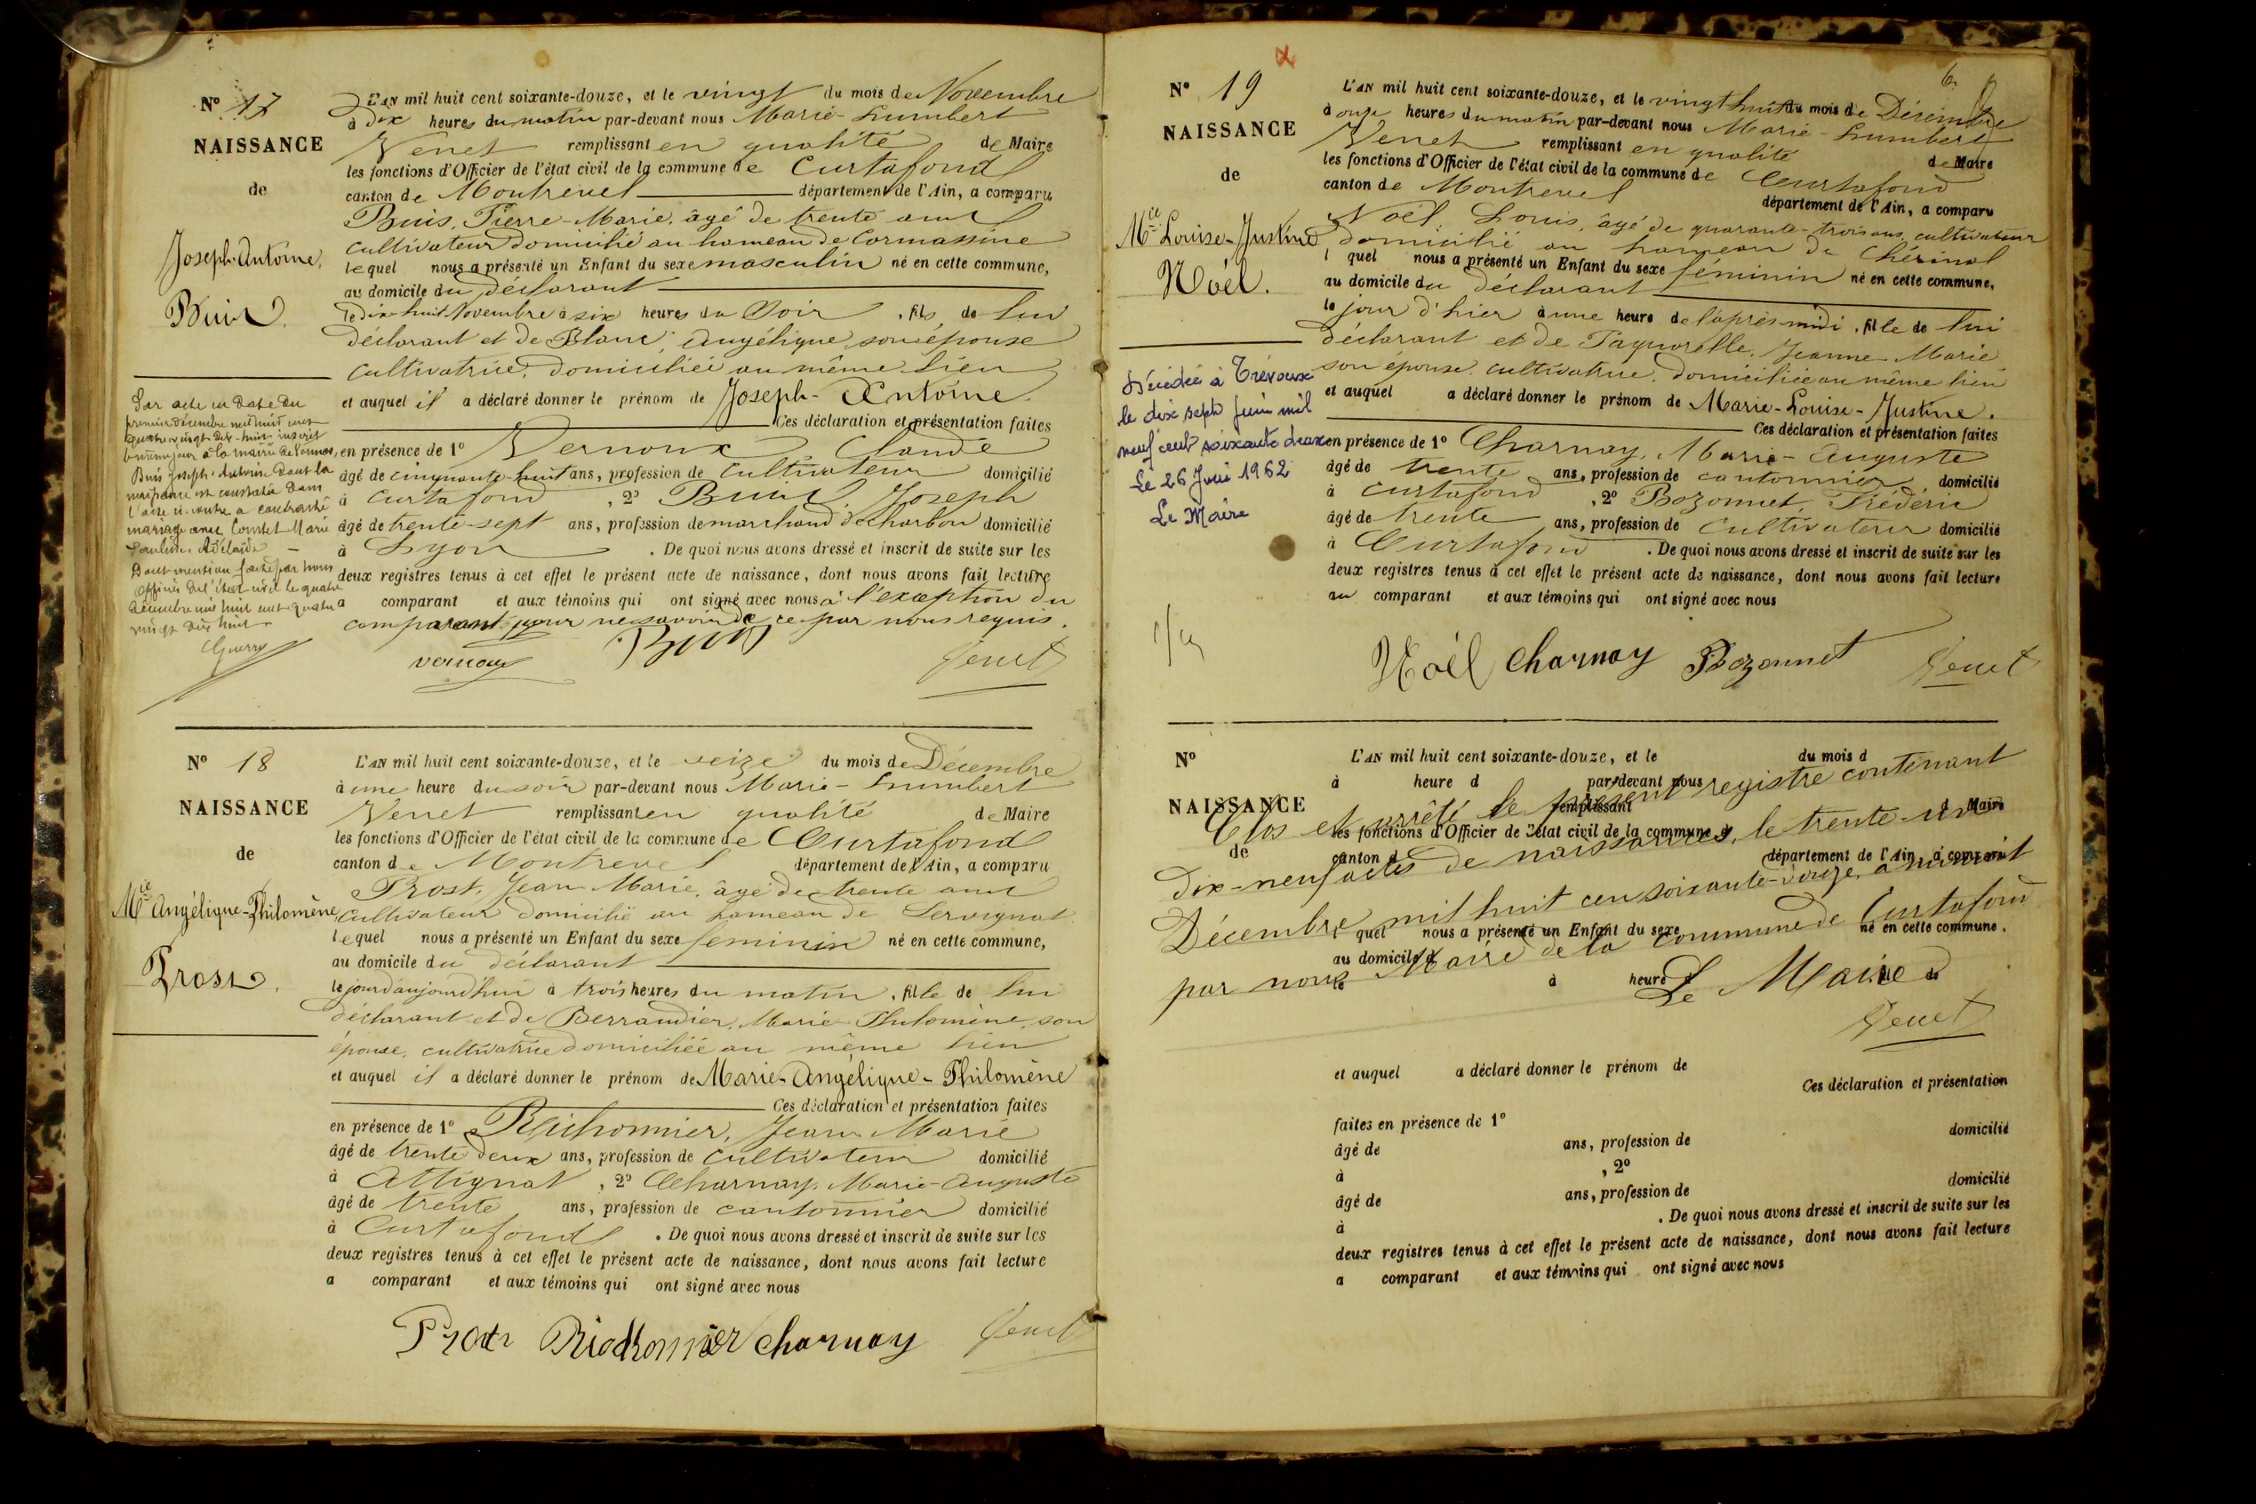 N° 17
NAISSANCE
de
Joseph-Antoine
Buis
L'AN mil huit cent soixante-douze, et le vingt du mois de Novembre
à dix heures du matin par-devant nous Marie-Humbert
Venet remplissant en qualité de Maire
les fonctions d'Officier de l'état civil de la commune de Curtafond
canton de Montrevel département de l'Ain, a comparu
Buis, Pierre-Marie, âgé de trente ans
cultivateur domicilié au hameau de Cormassine
lequel nous a présenté un Enfant du sexe masculin né en cette commune,
au domicile du déclarant
le dix huit Novembre à six heures du Soir, fils de lui
déclarant et de Blanc, Angélique, son épouse
cultivatrice, domiciliée au même lieu
et auquel il a déclaré donner le prénom de Joseph-Antoine.
Ces déclaration et présentation faites
en présence de 1° Vernoux, Claude
âgé de cinquante-huit ans, profession de Cultivateur domicilié
à Curtafond, 2° Buis, Joseph
âgé de trente-sept ans, profession de marchand de charbon domicilié
à Lyon. De quoi nous avons dressé et inscrit de suite sur les
deux registres tenus à cet effet le présent acte de naissance, dont nous avons fait lecture
a comparant et aux témoins qui ont signé avec nous à l'exception du
comparant pour ne savoir de ce par nous requis.
Buis
Venet
Par acte en date du
premier décembre mil huit cent
quatre vingt dix-huit inscrit
Buis Joseph-Antoine dont la
naissance est constatée dans
l'acte ci-contre a contracté
mariage avec Comtet Marie
Pauline Adélaïde
Dont mention faite par nous
Officier de l'état civil le quatre
décembre mil huit cent quatre
vingt dix huit
N° 18
NAISSANCE
de
Mie Angélique-Philomène
Prost
L'AN mil huit cent soixante-douze, et le seize du mois de Décembre
à une heure du soir par-devant nous Marie-Humbert
Venet remplissant en qualité de Maire
les fonctions d'Officier de l'état civil de la commune de Curtafond
canton de Montrevel département de l'Ain, a comparu
Prost, Jean Marie, âgé de trente ans
Cultivateur domicilié au hameau de Servignat
lequel nous a présenté un Enfant du sexe féminin né en cette commune,
au domicile du déclarant
le jour d'aujourd'hui à trois heures du matin, fille de lui
déclarant et de Berrandier, Marie-Philomène, son
épouse, cultivatrice domiciliée au même lieu
et auquel il a déclaré donner le prénom de Marie-Angélique-Philomène
Ces déclaration et présentation faites
en présence de 1° Richonnier, Jean Marie
âgé de trente deux ans, profession de Cultivateur domicilié
à Attignat, 2° Charnay, Marie-Auguste
âgé de trente ans, profession de cantonnier domicilié
à Curtafond. De quoi nous avons dressé et inscrit de suite sur les
deux registres tenus à cet effet le présent acte de naissance, dont nous avons fait lecture
a comparant et aux témoins qui ont signé avec nous
Prost Richonnier Charnay Venet
N° 19
NAISSANCE
de
Mie Louise-Justine
Noël.
L'AN mil huit cent soixante-douze, et le vingt huit du mois de Décembre
à onze heures du matin par-devant nous Marie-Humbert
Venet remplissant en qualité de Maire
les fonctions d'Officier de l'état civil de la commune de Curtafond
canton de Montrevel département de l'Ain, a comparu
Noël, Louis, âgé de quarante-trois ans, cultivateur
domicilié au hameau de Chérinal
l quel nous a présenté un Enfant du sexe féminin né en cette commune,
au domicile du déclarant
le jour d'hier à une heure de l'après midi, fille de lui
déclarant et de Paquerelle, Jeanne-Marie
son épouse, cultivatrice, domiciliée au même lieu
et auquel a déclaré donner le prénom de Marie-Louise-Justine.
Ces déclaration et présentation faites
en présence de 1° Charnay, Marie-Auguste
âgé de trente ans, profession de cantonnier domicilié
à Curtafond, 2° Bozonnet, Frédéric
âgé de trente ans, profession de Cultivateur domicilié
à Curtafond. De quoi nous avons dressé et inscrit de suite sur les
deux registres tenus à cet effet le présent acte de naissance, dont nous avons fait lecture
au comparant et aux témoins qui ont signé avec nous
Noël Charnay Bozonnet Venet
Décédée à Trévoux
le dix sept Juin mil
neuf cent soixante deux
Le 26 Juin 1962
Le Maire
N°
NAISSANCE
de
L'AN mil huit cent soixante-douze, et le du mois d
à heure d par-devant nous
remplissant d Maire
les fonctions d'Officier de l'état civil de la commune d
canton d département de l'Ain, a comparu
l quel nous a présenté un Enfant du sexe né en cette commune,
au domicile d
le à heure d
Clos et arrêté le présent registre contenant
dix-neuf actes de naissances, le trente-un
Décembre mil huit cent soixante-douze, à minuit
par nous Maire de la commune de Curtafond
Le Maire
Venet
et auquel a déclaré donner le prénom de
Ces déclaration et présentation
faites en présence de 1°
âgé de ans, profession de domicilié
à , 2°
âgé de ans, profession de domicilié
à . De quoi nous avons dressé et inscrit de suite sur les
deux registres tenus à cet effet le présent acte de naissance, dont nous avons fait lecture
a comparant et aux témoins qui ont signé avec nous